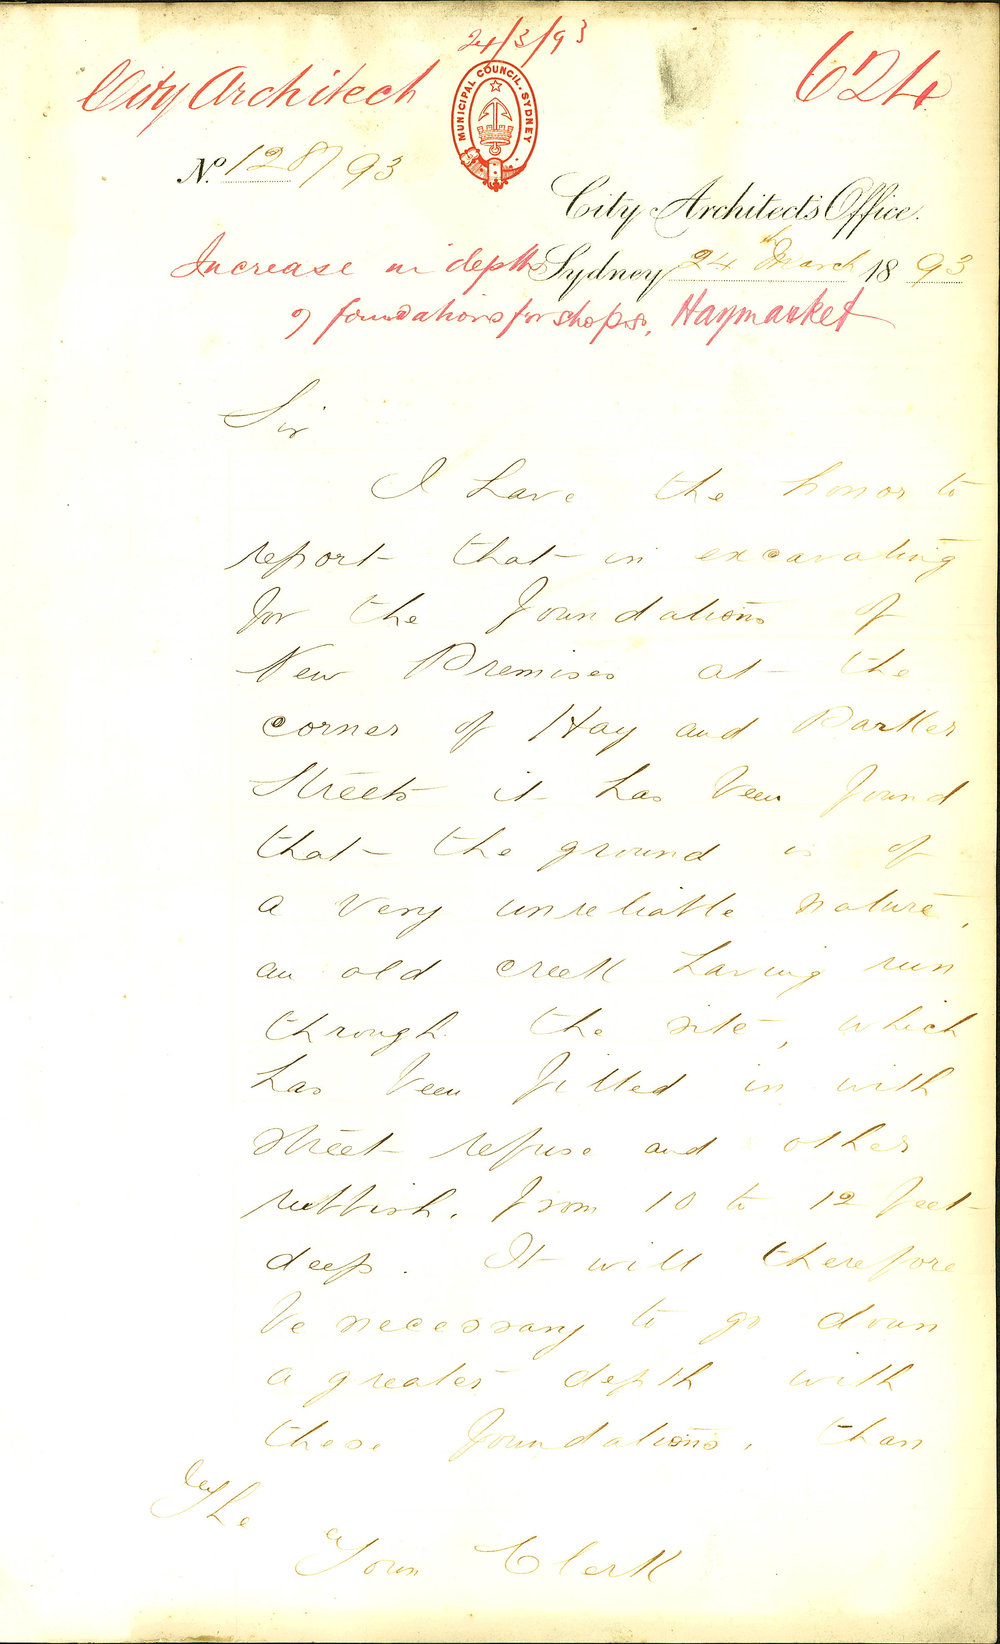 24/3/93
City Architect
624
MUNICIPAL COUNCIL. SYDNEY
No. 128/93
City Architect's Office.
Sydney 24th March 1893
Increase in depth
of foundations for shops, Haymarket
Sir
I have the honor to
report that in excavating
for the foundations of
New Premises at the
corner of Hay and Parker
Streets it has been found
that the ground is of
a very unreliable nature,
an old creek having run
through the site, which
has been filled in with
street refuse and other
rubbish, from 10 to 12 feet
deep. It will therefore
be necessary to go down
a greater depth with
these foundations, than
The
Town Clerk